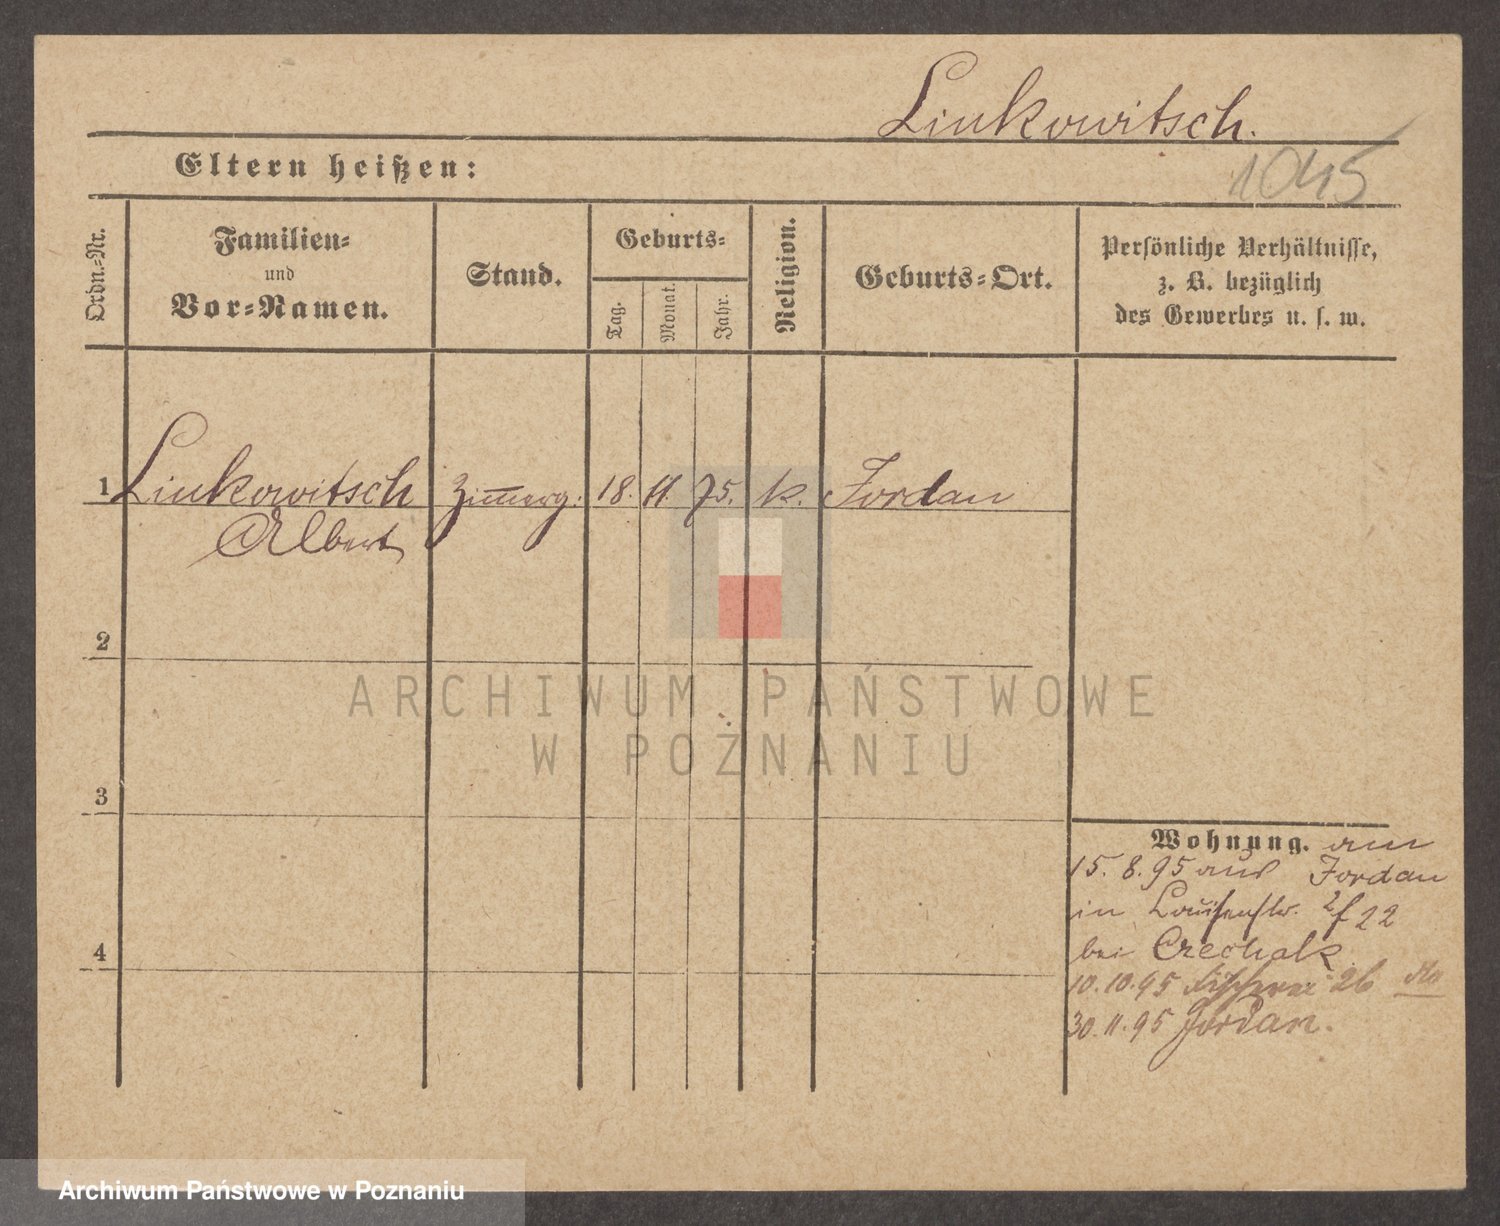 Linkowitsch.
1045
Eltern heißen:
Ordn.-Nr.
Familien-
und
Vor-Namen.
Stand.
Geburts-
Tag.
Monat.
Jahr.
Religion.
Geburts-Ort.
Persönliche Verhältnisse,
z. B. bezüglich
des Gewerbes u. s. w.
1 Linkowitsch Zimmerg. 18. 11. 75. k. Jordan
Albert
2
3
4
Wohnung. am
15. 8. 95 aus Jordan
in Louisenstr. 22
bei
10.10.95 Fischerei 26
30.11.95 Jordan.
ARCHIWUM PAŃSTWOWE
W POZNANIU
Archiwum Państwowe w Poznaniu